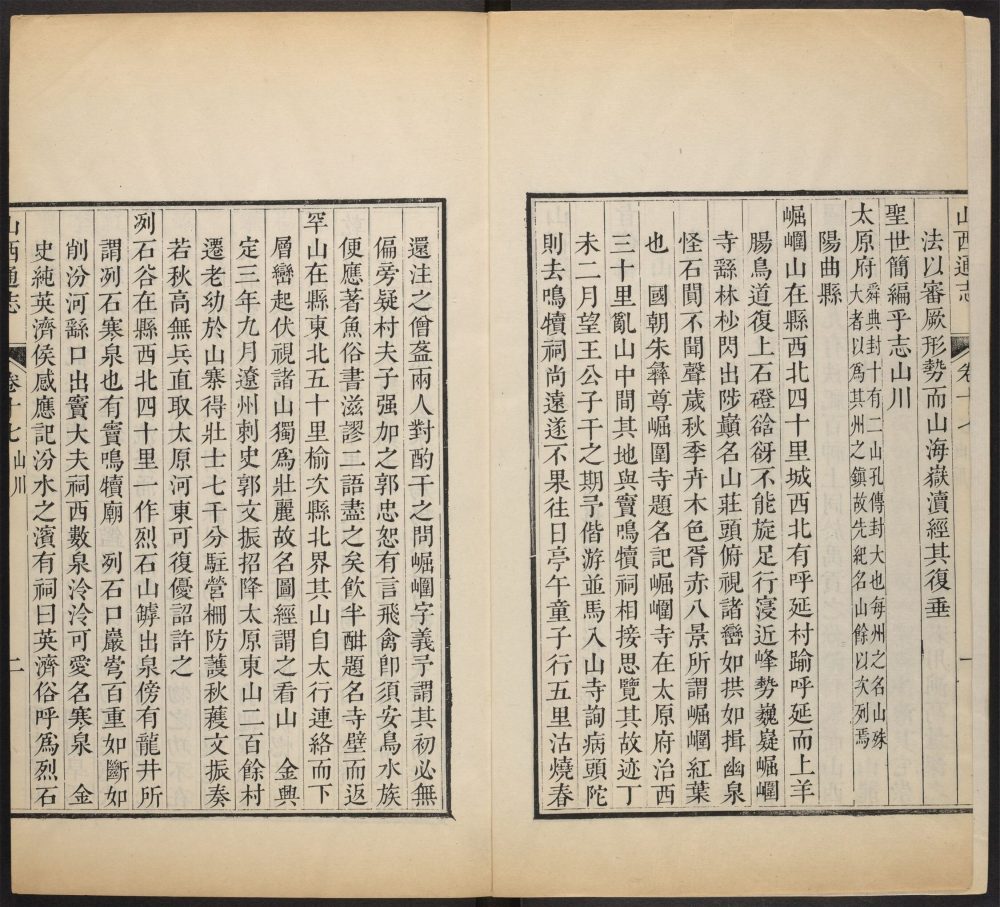 山西通志
卷十
一
法以審厥形勢而山海嶽瀆經其復垂
聖世簡編乎志山川
太原府舜典封十有二山孔傳封大也每州之名山殊
大者以爲其州之鎮故先紀名山餘以次列焉
陽曲縣
崛𡸁山在縣西北四十里城西北有呼延村踰呼延而上羊
腸鳥道復上石磴谽谺不能旋足行寖近峰勢巍嶷崛𡸁
寺繇林杪閃出陟巔名山莊頭俯視諸巒如拱如揖幽泉
怪石閒不聞聲歲秋季卉木色胥赤八景所謂崛𡸁紅葉
也　國朝朱彝尊崛圍寺題名記崛𡸁寺在太原府治西
三十里亂山中間其地與竇鳴犢祠相接思覽其故迹丁
未二月望王公子千之期予偕游並馬入山寺詢病頭陀
則去鳴犢祠尚遠遂不果往日亭午童子行五里沽燒春
還注之曾盎兩人對酌千之問崛𡸁字義予謂其初必無
偏旁疑村夫子强加之郭忠恕有言飛禽卽須安鳥水族
便應著魚俗書滋謬二語盡之矣飮半酣題名寺壁而返
罕山在縣東北五十里榆次縣北界其山自太行連絡而下
層巒起伏視諸山獨爲壯麗故名圖經謂之看山　金興
定三年九月遼州刺史郭文振招降太原東山二百餘村
遷老幼於山寨得壯士七千分駐營柵防護秋穫文振奏
若秋高無兵直取太原河東可復優詔許之
冽石谷在縣西北四十里一作烈石山罅出泉傍有龍井所
謂冽石寒泉也有竇鳴犢廟　冽石口巖嵤百重如斷如
削汾河繇口出竇大夫祠西數泉泠泠可愛名寒泉　金
史純英濟侯感應記汾水之濱有祠曰英濟俗呼爲烈石
山西通志
卷十七　山川
二